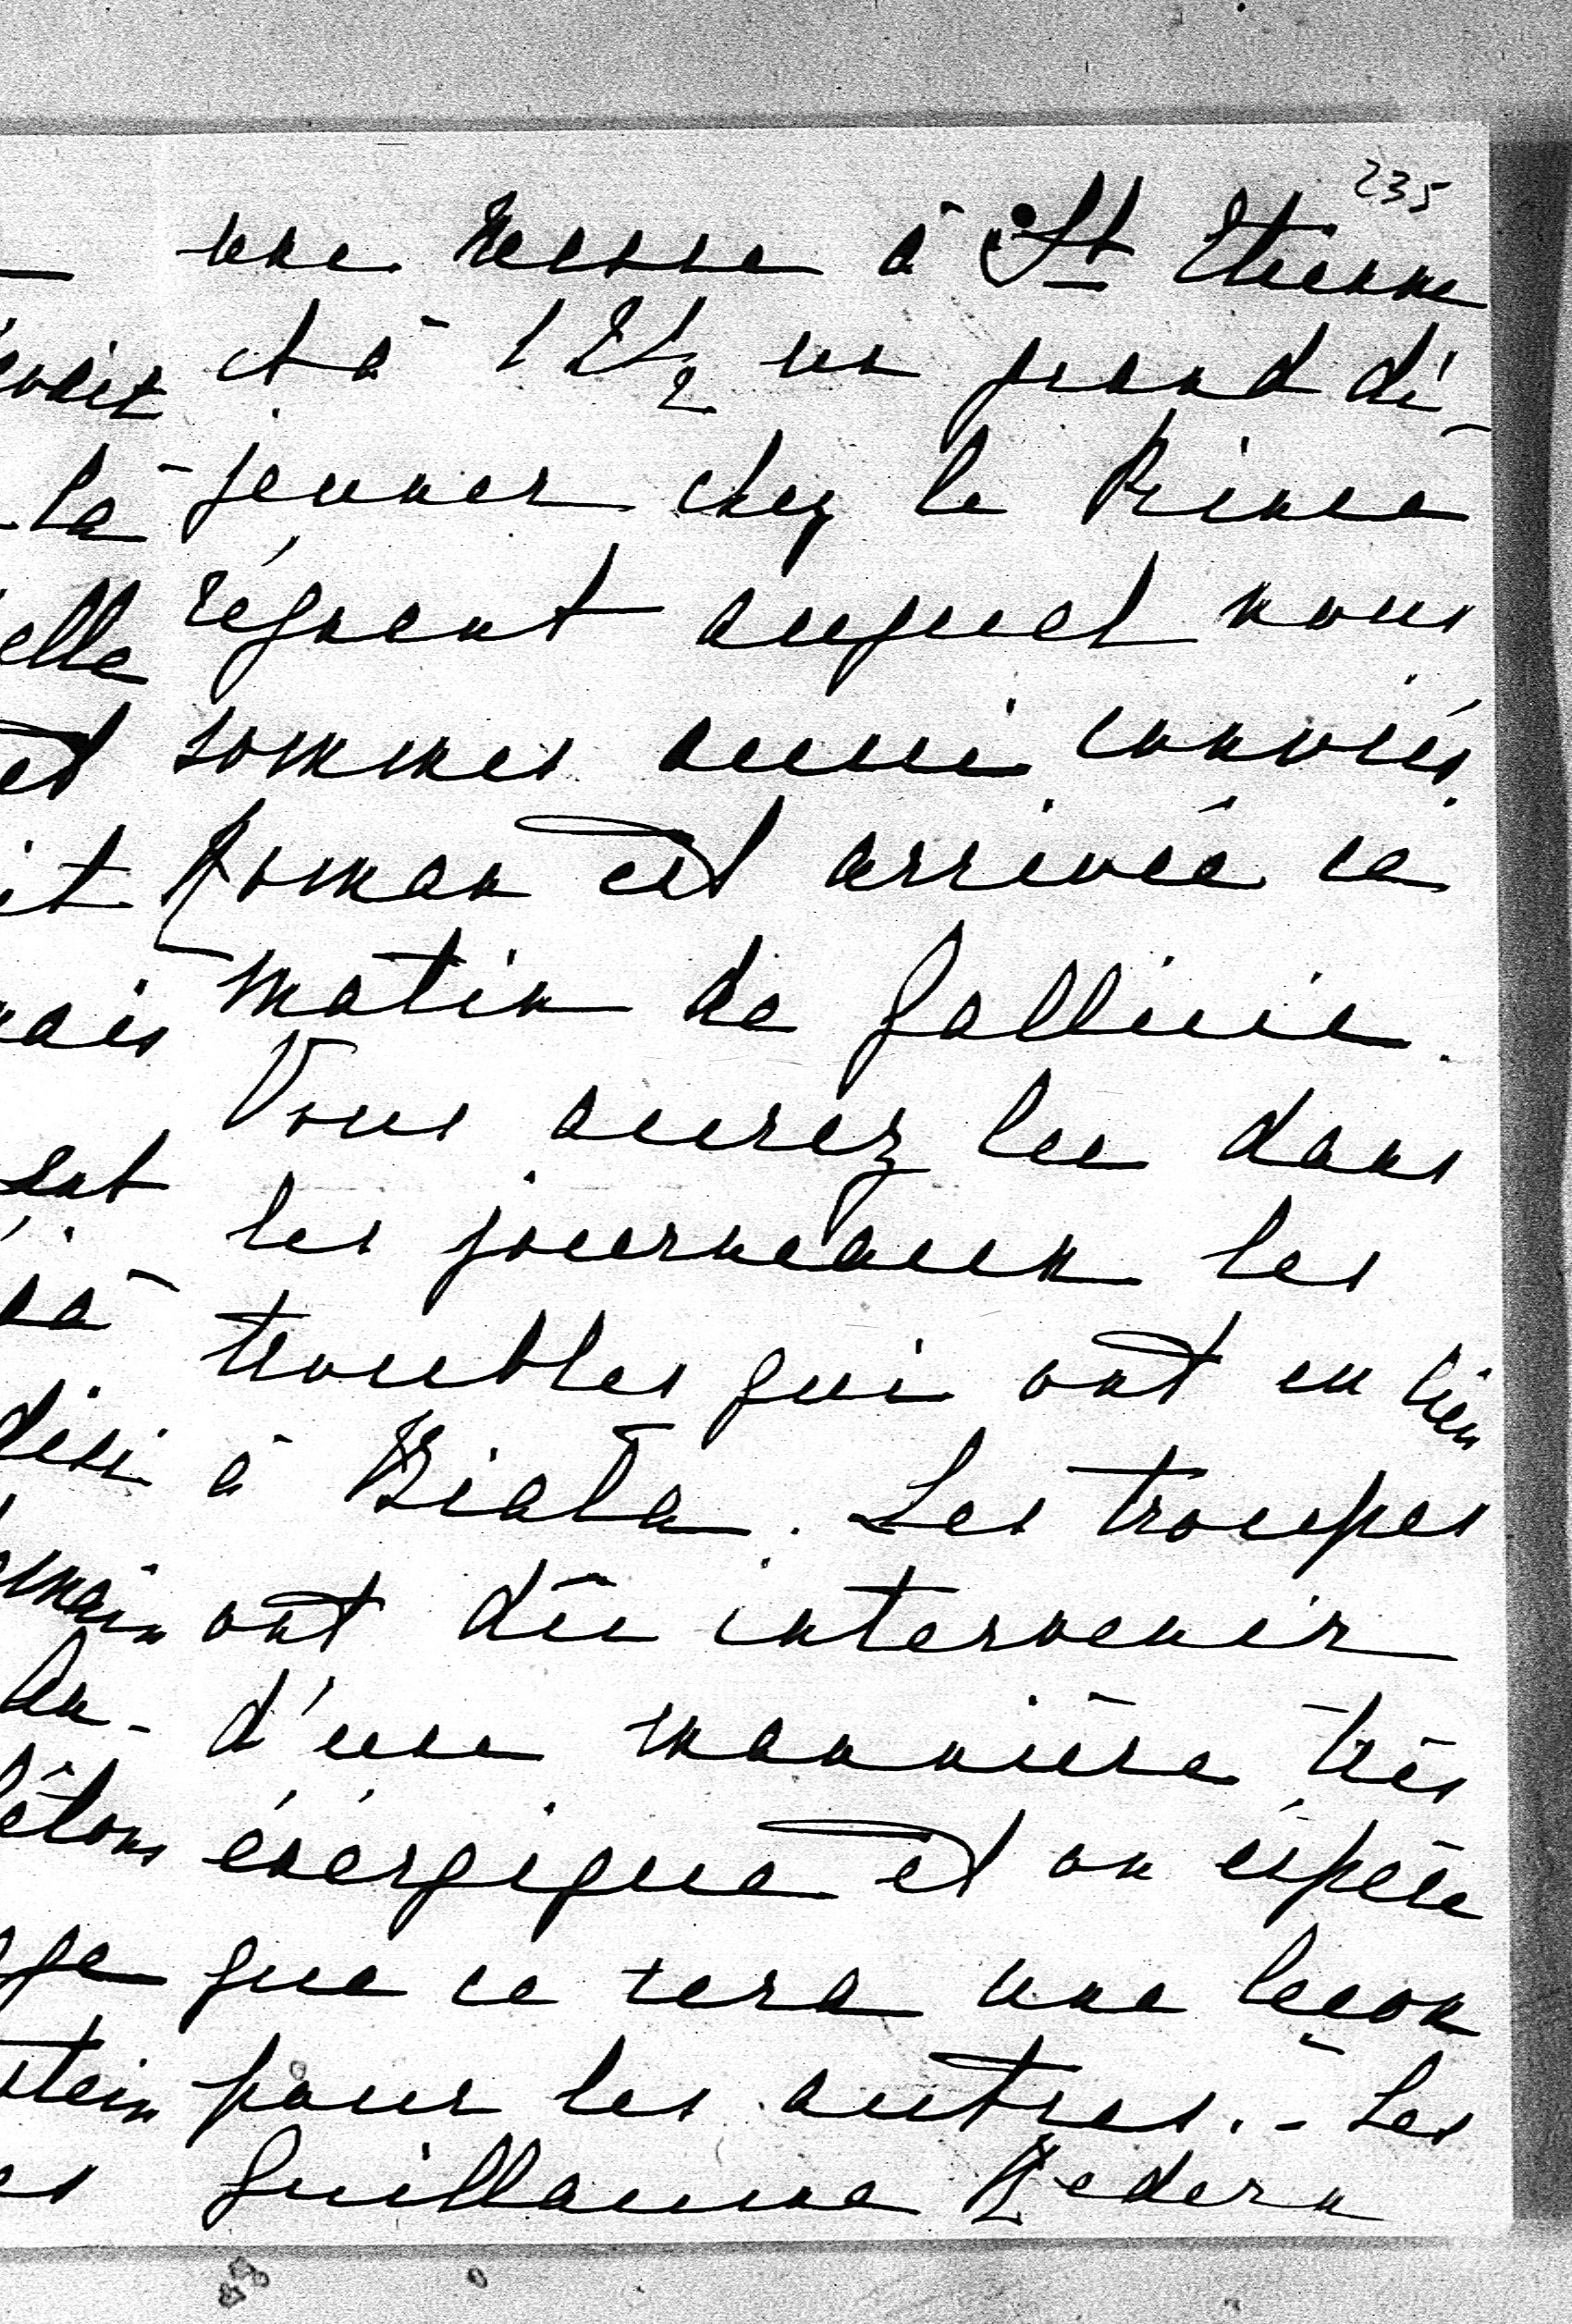 235
une Messe à St Etienne
et à 12 1/2 un grand dé-
jeuner chez le Prince
régnant auquel nous
sommes aussi conviés.
Roman est arrivée ce
matin de Gallicie.
Vous aurez lu dans
les journeaux les
troubles qui ont eu lieu
à Biala. Les troupes
ont dû intervenir
d'une mannière très
énergique et on éspère
que ce sera une leçon
pour les autres. - Les
Guillaume Redern
la
elle
et
it
ent